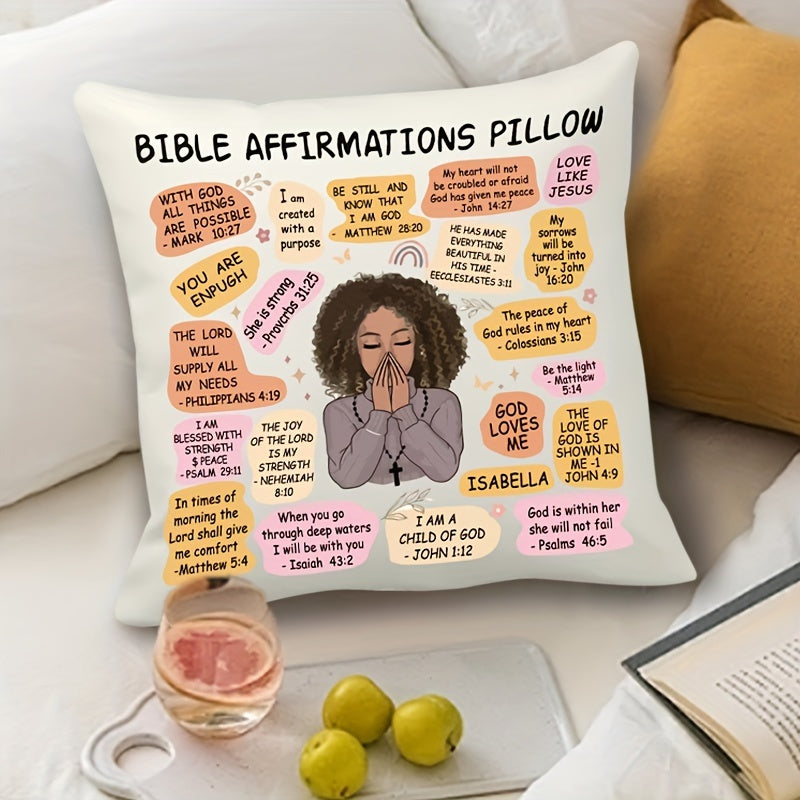 BIBLE AFFIRMATIONS PILLOW
WITH GOD
ALL THINGS
ARE POSSIBLE
- MARK 10:27
I am
created
with a
purpose
BE STILL AND
KNOW THAT
I AM GOD
- MATTHEW 28:20
My heart will not
be croubled or afraid
God has given me peace
- John 14:27
LOVE
LIKE
JESUS
YOU ARE
ENPUGH
She is strong
- Provcrbs 31:25
HE HAS MADE
EVERYTHING
BEAUTIFUL IN
HIS TIME -
EECCLESIASTES 3:11
My
sorrows
will be
turned into
joy - John
16:20
THE LORD
WILL
SUPPLY ALL
MY NEEDS
- PHILIPPIANS 4:19
The peace of
God rules in my heart
- Colossians 3:15
Be the light
- Matthew
5:14
I AM
BLESSED WITH
STRENGTH
$ PEACE
- PSALM 29:11
THE JOY
OF THE LORD
IS MY
STRENGTH
- NEHEMIAH
8:10
GOD
LOVES
ME
THE
LOVE OF
GOD IS
SHOWN IN
ME -1
JOHN 4:9
ISABELLA
In times of
morning the
Lord shall give
me comfort
-Matthew 5:4
When you go
through deep waters
I will be with you
- Isaiah 43:2
I AM A
CHILD OF GOD
- JOHN 1:12
God is within her
she will not fail
- Psalms 46:5